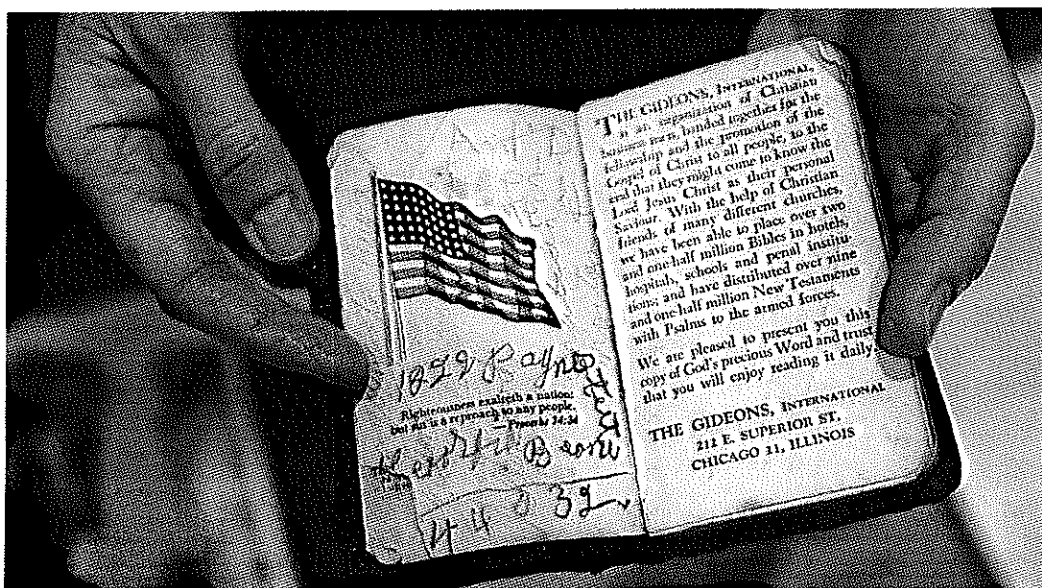 1022 Rayn
Righteousness exalteth a nation:
but sin is a reproach to any people.
—Proverbs 14:34
Bronx
32
THE GIDEONS, INTERNATIONAL,
is an organization of Christian
business men, banded together for the
fellowship and the promotion of the
Gospel of Christ to all people, to the
end that they might come to know the
Lord Jesus Christ as their personal
Saviour. With the help of Christian
friends of many different churches,
we have been able to place over two
and one-half million Bibles in hotels,
hospitals, schools and penal institu-
tions; and have distributed over nine
and one-half million New Testaments
with Psalms to the armed forces.
We are pleased to present you this
copy of God's precious Word and trust
that you will enjoy reading it daily.
THE GIDEONS, INTERNATIONAL
212 E. SUPERIOR ST.
CHICAGO 11, ILLINOIS